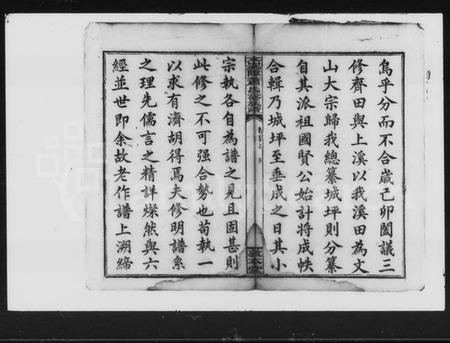 烏乎分而不合歲己卯闔議三
修齊田與上溪以我溪田為文
山大宗歸我總纂城坪則分纂
自其派祖國賢公始計將成帙
合輯乃城坪至垂成之日其小
宗執各自為譜之見且固甚則
此修之不可强合勢也苟執一
以求有濟胡得焉夫修明譜系
之理先儒言之精詳燦然與六
經並世即余故老作譜上溯締